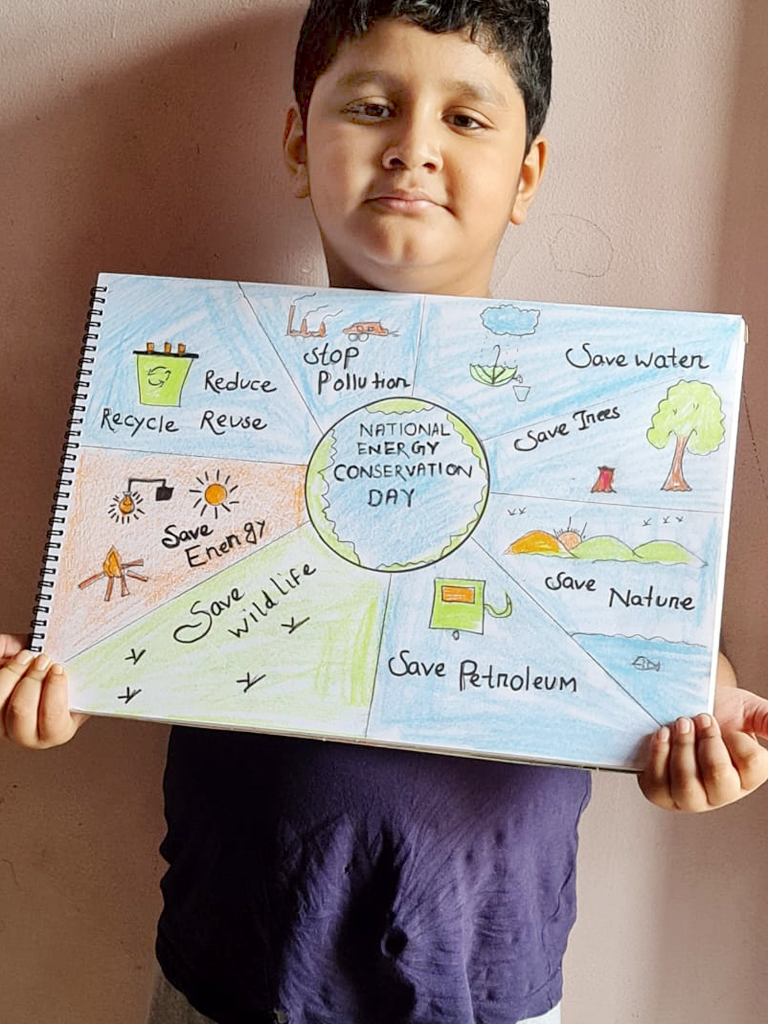 Reduce
Recycle Reuse
Stop
Pollution
Save water
Save Trees
NATIONAL
ENERGY
CONSERVATION
DAY
Save
Energy
Save
wildlife
Save Petroleum
Save Nature